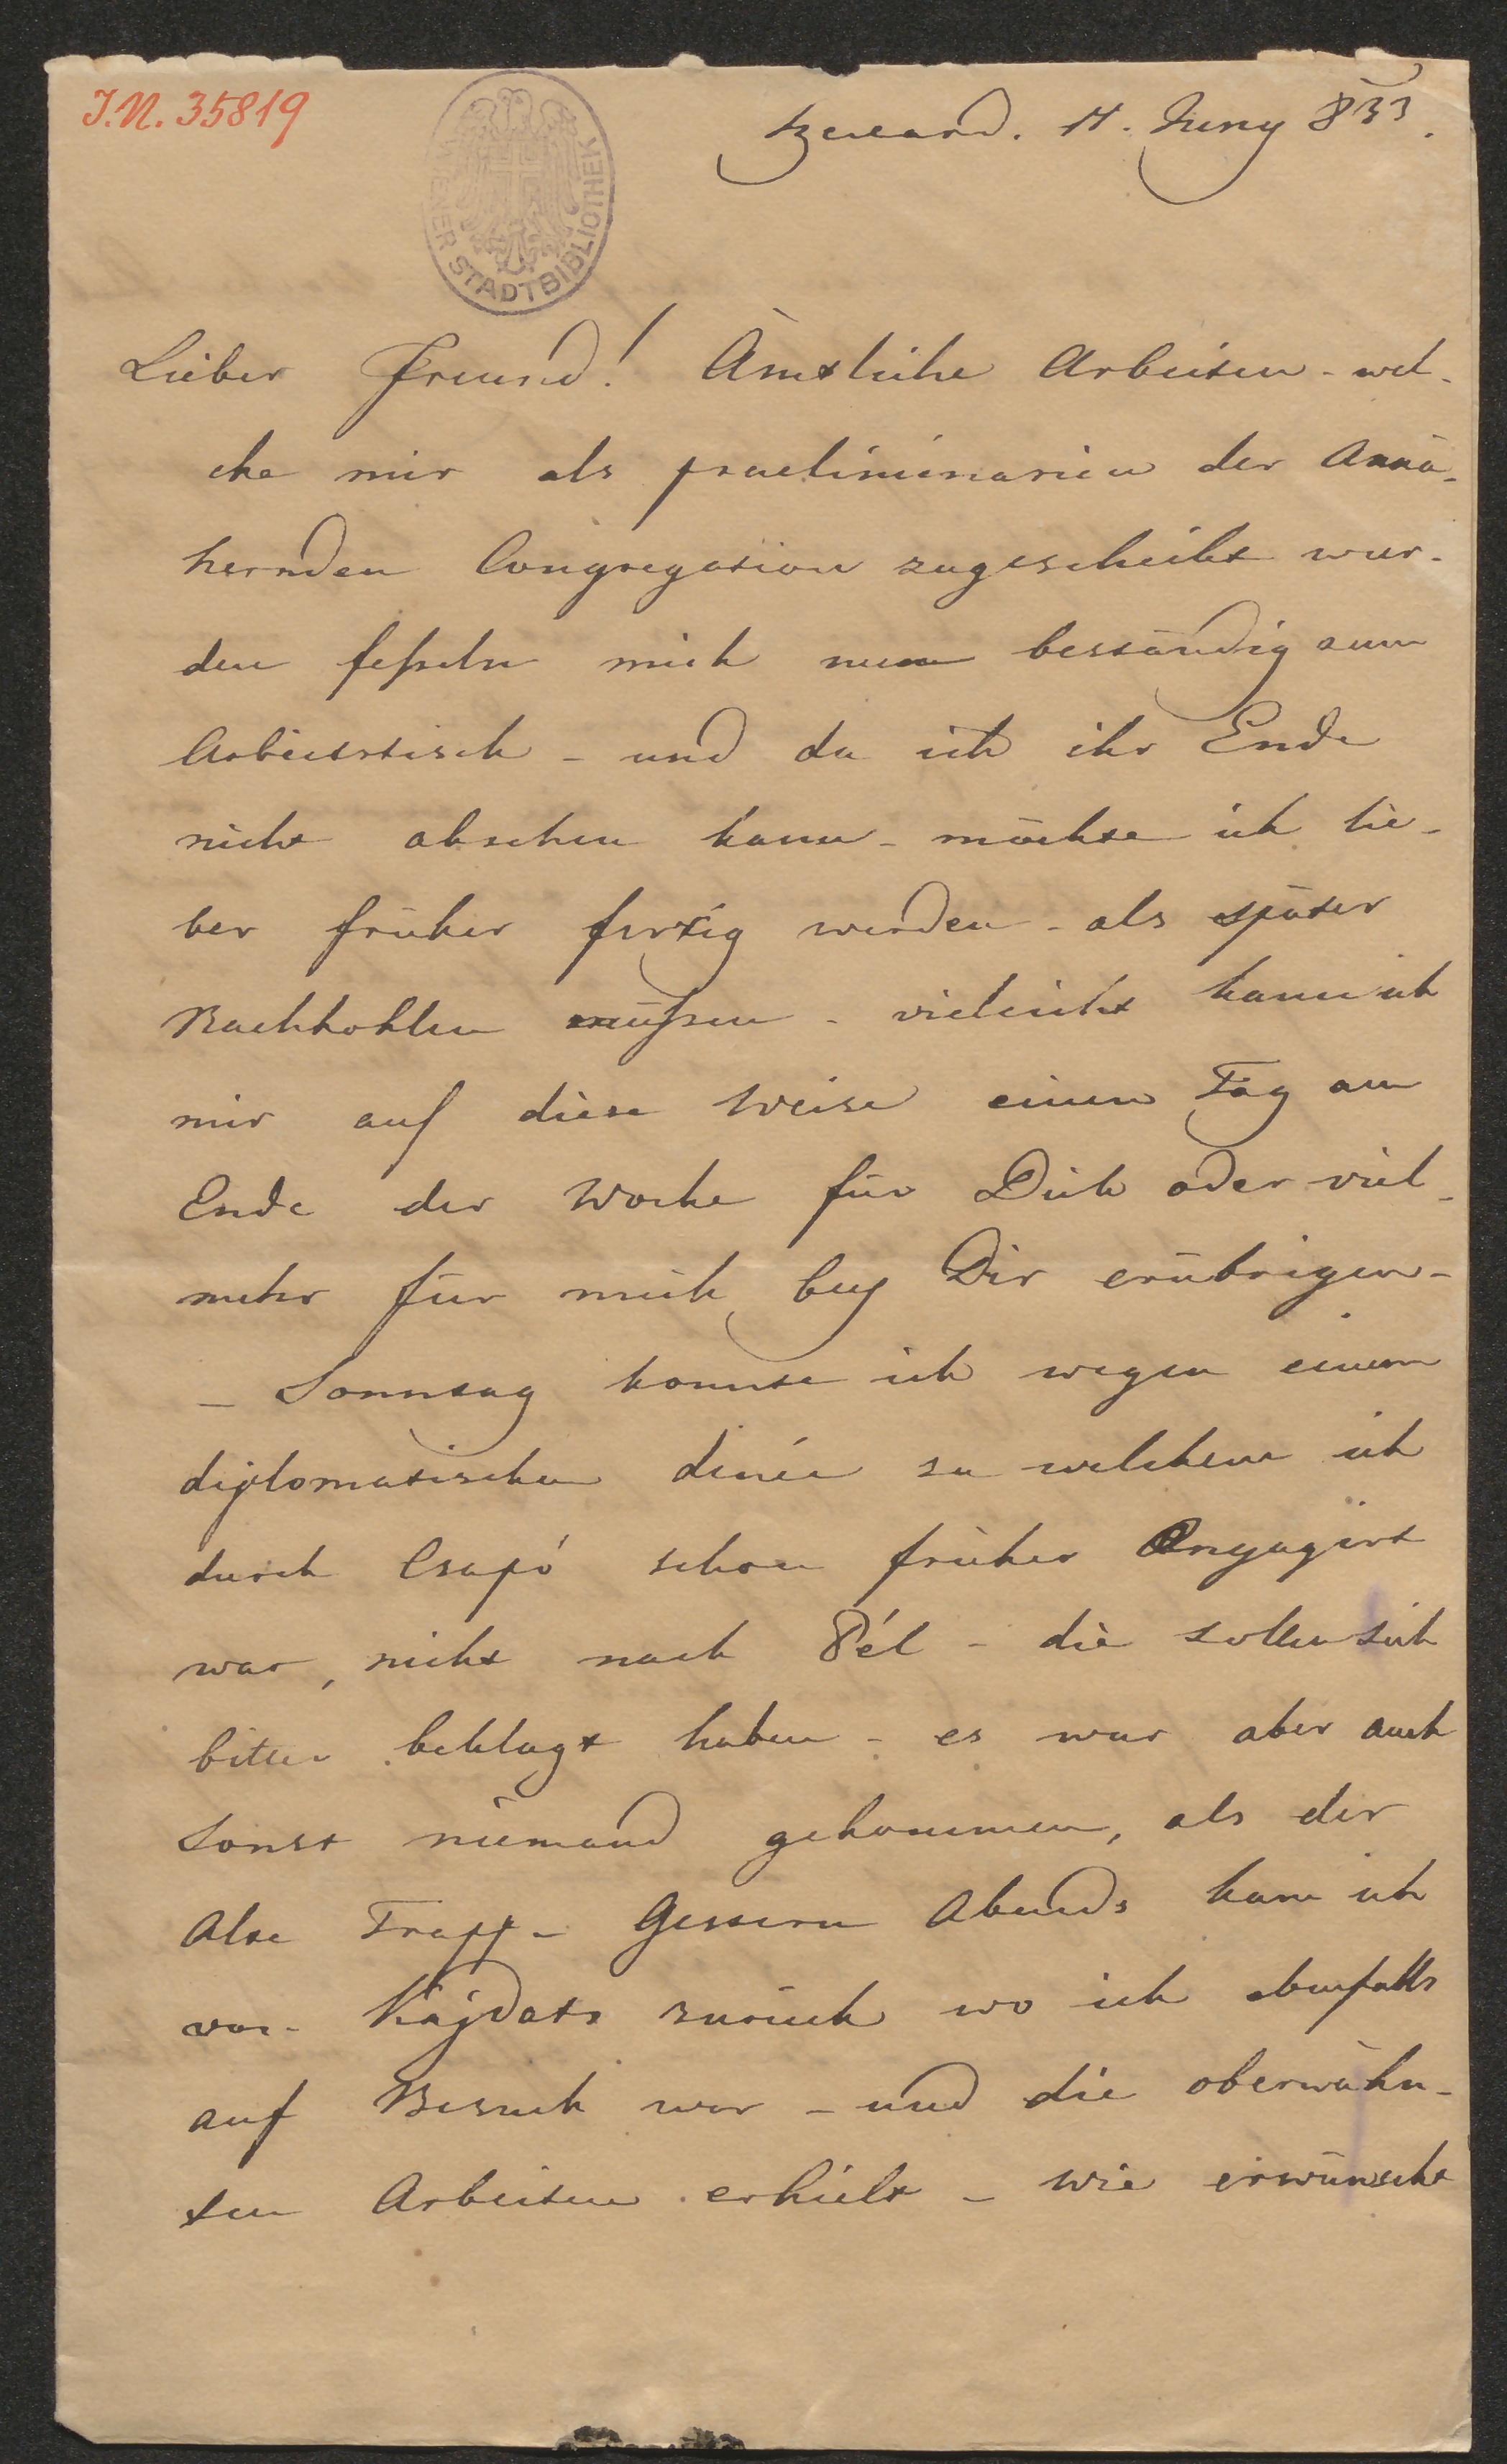 J.N. 35819
WIENER STADTBIBLIOTHEK
Szexard. 11. Juny 833.
Lieber Freund! Ämtliche Arbeiten - wel-
che mir als praeliminarien der Annä-
hernden Congregation zugescheikt wur-
den feßeln mich nun beständig zum
Arbeitstisch - und da ich ihr Ende
nicht absehen kann - möchte ich lie-
ber früher fertig werden - als später
Nachhohlen müßen - vieleicht kann ich
mir auf diese Weise einen Tag am
Ende der Woche für Dich oder viel-
mehr für mich bey Dir erübrigen -
- Sonntag konnte ich wegen einem
diplomatischen dinée zu welchem ich
durch Csapó schon früher Engagirt
war, nicht nach Pél - die sollen sich
bitter beklagt haben - es war aber auch
Sonst niemand gekommen, als der
Alte Trapp - Gestern Abends kam ich
von Kajdats zurück wo ich ebenfalls
auf Besuch war - und die oberwähn-
ten Arbeiten erhielt - wie erwünscht